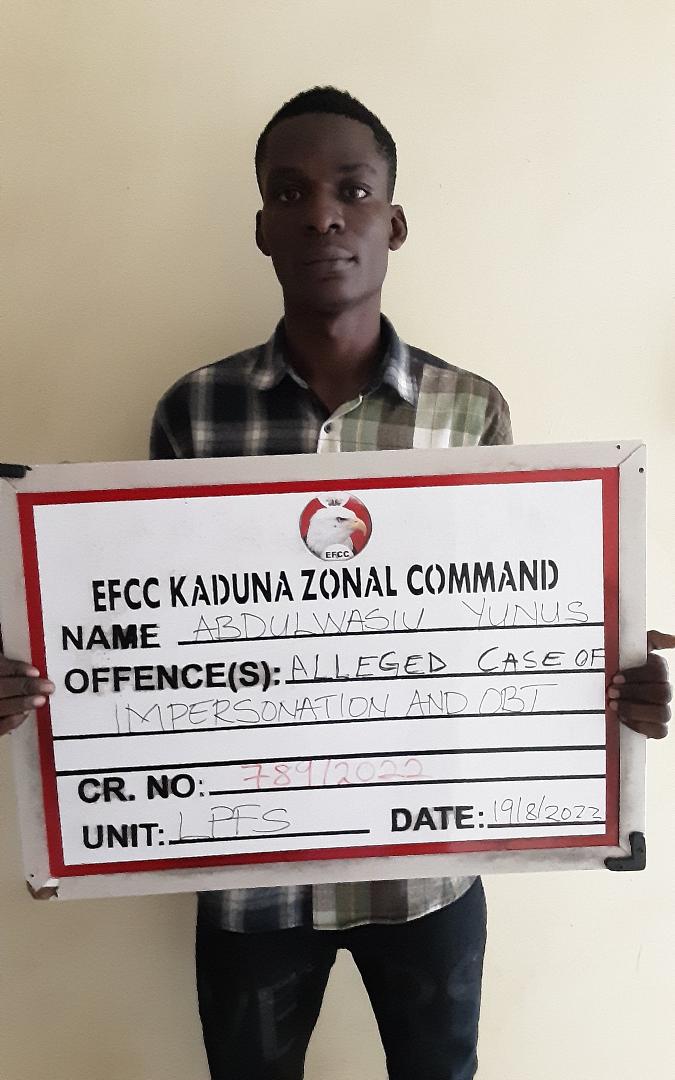 EFCC
EFCC KADUNA ZONAL COMMAND
NAME ABDULWASIU YUNUS
OFFENCE(S): ALLEGED CASE OF
IMPERSONATION AND OBT
CR. NO: 789/2022
UNIT: LPFS DATE: 19/8/2022